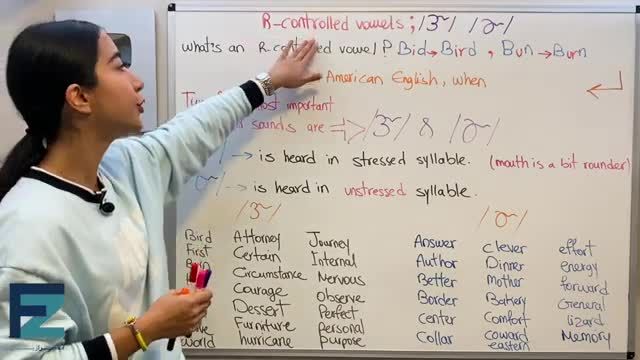 R-controlled vowels; /ɝ/ /ɚ/
what's an R controlled vowel? Bid→Bird, Bun→Burn
American English, when
most important
sounds are ⇒ /ɝ/ & /ɚ/
→ is heard in stressed syllable. (mouth is a bit rounder)
→ is heard in unstressed syllable.
/ɝ/ /ɚ/
Bird Attorney Journey Answer clever effort
First Certain Internal Author Dinner energy
Circumstance Nervous Better Mother forward
Courage Observe Border Bakery General
Dessert Perfect center Comfort lizard
Furniture personal Collar coward Memory
World hurricane purpose eastern
FZ